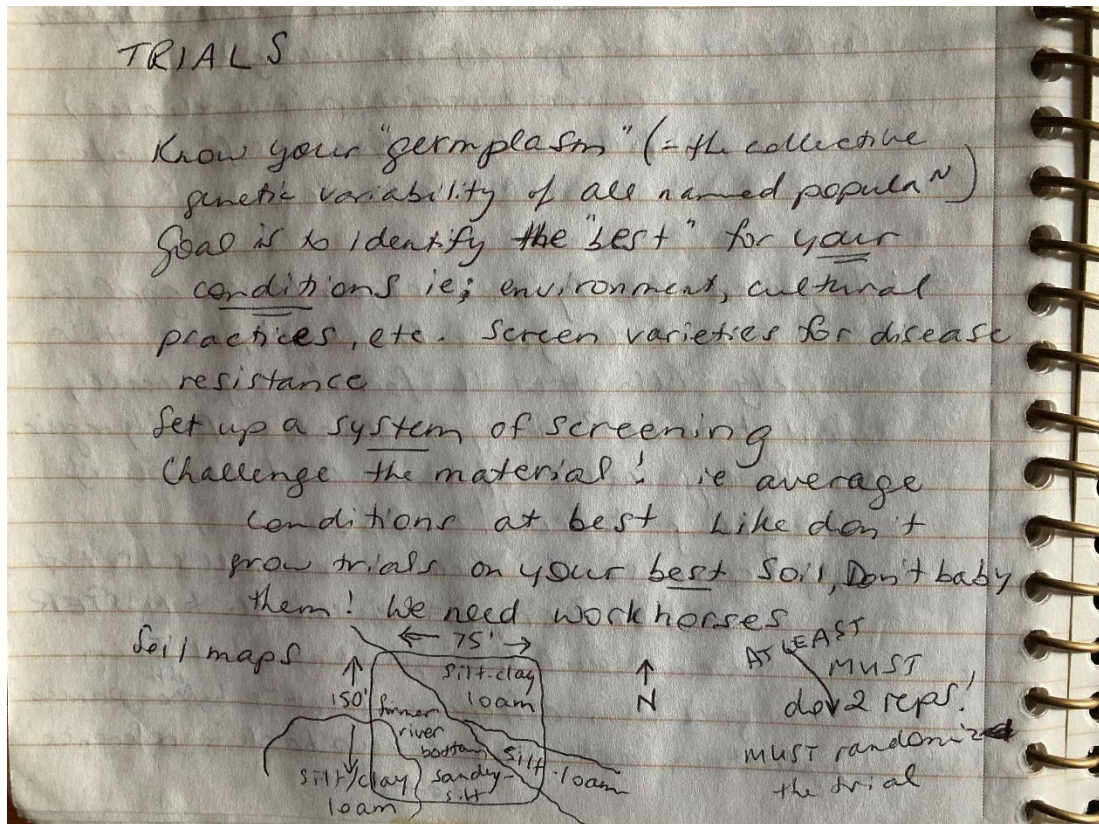 TRIALS
Know your "germplasm" (= the collective
genetic variability of all named populaN)
Goal is to identify the "best" for your
conditions ie; environment, cultural
practices, etc. Screen varieties for disease
resistance
Set up a system of screening
Challenge the material! ie average
conditions at best. Like don't
grow trials on your best soil, Don't baby
them! We need workhorses
Soil maps
← 75' →
↑
150'
↓
silt-clay
loam
former
river
bottom
sandy-
silt
silt-loam
silt/clay
loam
↑
N
AT LEAST
MUST
do 2 reps!
MUST randomize
the trial